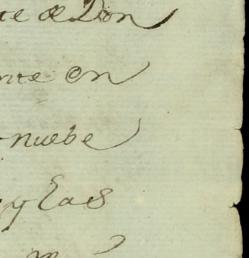 te de Don
nte en
nuebe
y las